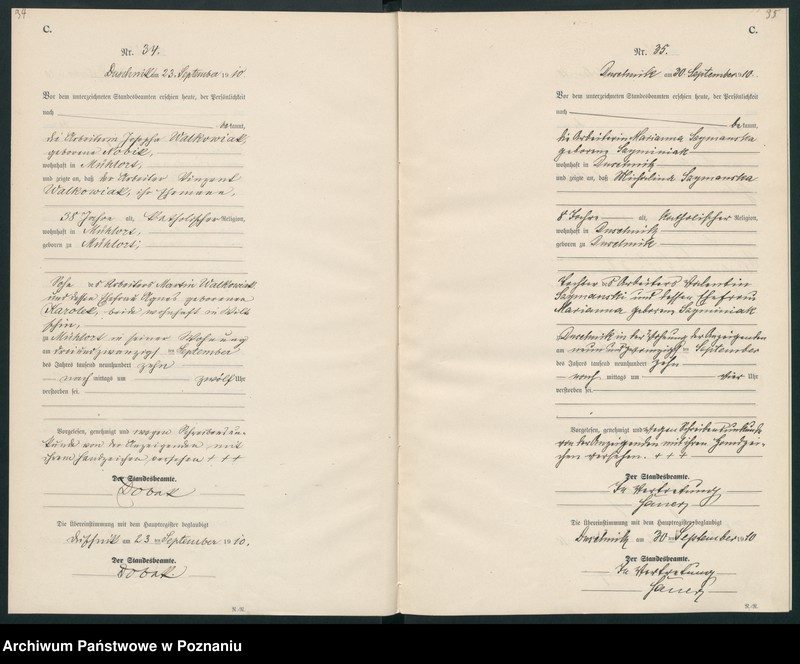 34
C.
Nr. 34.
Duschnik am 23. September 1910.
Vor dem unterzeichneten Standesbeamten erschien heute, der Persönlichkeit
nach
bekannt,
die Arbeiterin Josepha Walkowiak,
geborene Nobik,
wohnhaft in Mühlort,
und zeigte an, daß der Arbeiter Vinzent
Walkowiak, ihr Ehemann,
58 Jahre alt, katholischer Religion,
wohnhaft in Mühlort,
geboren zu Mühlort,
Sohn des Arbeiters Martin Walkowiak
und dessen Ehefrau Agnes geborenen
beide wohnhaft in
zu Mühlort in seiner Wohnung
am dreiundzwanzigsten September
des Jahres tausend neunhundert zehn
nach mittags um zwölf Uhr
verstorben sei.
Vorgelesen, genehmigt und wegen Schreibensun-
kunde von der Anzeigenden mit
ihrem Handzeichen versehen + + +
Der Standesbeamte.
Dobak
Die Übereinstimmung mit dem Hauptregister beglaubigt
Duschnik am 23. September 1910.
Der Standesbeamte.
Dobak
35
C.
Nr. 35.
Duschnik am 30. September 1910.
Vor dem unterzeichneten Standesbeamten erschien heute, der Persönlichkeit
nach
bekannt,
die Arbeiterin Marianna Szymanska
geborene Szyminiak
wohnhaft in Duschnik
und zeigte an, daß Michalina Szymanska
8 Jahre alt, katholischer Religion,
wohnhaft in Duschnik
geboren zu Duschnik
Tochter des Arbeiters Valentin
Szymanski und dessen Ehefrau
Marianna geborene Szyminiak
Duschnik in der Wohnung der Anzeigenden
am neunundzwanzigsten September
des Jahres tausend neunhundert zehn
nach mittags um vier Uhr
verstorben sei.
Vorgelesen, genehmigt und wegen Schreibensunkunde
von der Anzeigenden mit ihrem Handzei-
chen versehen. + + +
Der Standesbeamte.
In Vertretung
Die Übereinstimmung mit dem Hauptregister beglaubigt
Duschnik am 30 September 1910
Der Standesbeamte.
In Vertretung
Archiwum Państwowe w Poznaniu